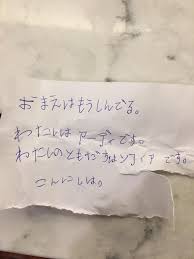 おまえはもうしんでる。
わたしは アーディです。
わたしのともだちはソフィア です。
こんにしは。